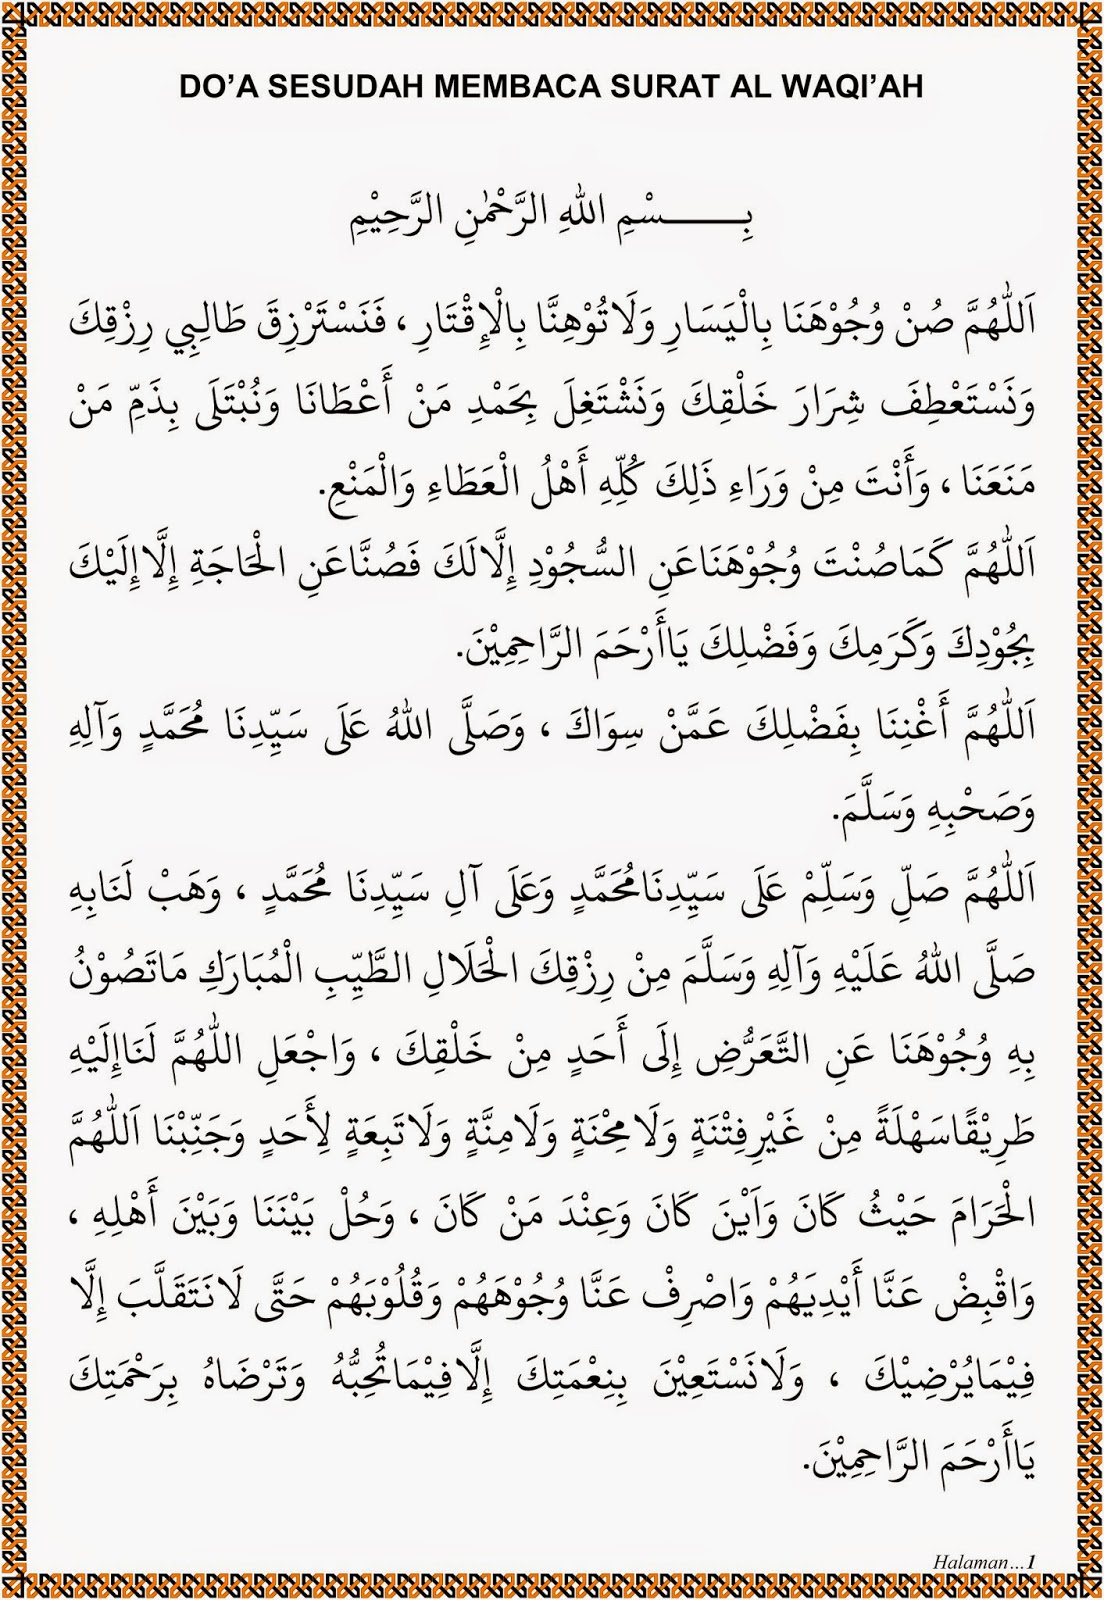 DO’A SESUDAH MEMBACA SURAT AL WAQI’AH
بِـــــــسْمِ اللهِ الرَّحْمٰنِ الرَّحِيْمِ
اَللّٰهُمَّ صُنْ وُجُوْهَنَا بِالْيَسَارِ وَلَاتُوْهِنَّا بِالْإِقْتَارِ ، فَنَسْتَرْزِقَ طَالِبِي رِزْقِكَ
وَنَسْتَعْطِفَ شِرَارَ خَلْقِكَ وَنَشْتَغِلَ بِحَمْدِ مَنْ أَعْطَانَا وَنُبْتَلَى بِذَمِّ مَنْ
مَنَعَنَا ، وَأَنْتَ مِنْ وَرَاءِ ذَلِكَ كُلِّهِ أَهْلُ الْعَطَاءِ وَالْمَنْعِ.
اَللّٰهُمَّ كَمَاصُنْتَ وُجُوْهَنَاعَنِ السُّجُوْدِ إِلَّالَكَ فَصُنَّاعَنِ الْحَاجَةِ إِلَّاإِلَيْكَ
بِجُوْدِكَ وَكَرَمِكَ وَفَضْلِكَ يَاأَرْحَمَ الرَّاحِمِيْنَ.
اَللّٰهُمَّ أَغْنِنَا بِفَضْلِكَ عَمَّنْ سِوَاكَ ، وَصَلَّى اللهُ عَلَى سَيِّدِنَا مُحَمَّدٍ وَآلِهِ
وَصَحْبِهِ وَسَلَّمَ.
اَللّٰهُمَّ صَلِّ وَسَلِّمْ عَلَى سَيِّدِنَامُحَمَّدٍ وَعَلَى آلِ سَيِّدِنَا مُحَمَّدٍ ، وَهَبْ لَنَابِهِ
صَلَّى اللهُ عَلَيْهِ وَآلِهِ وَسَلَّمَ مِنْ رِزْقِكَ الْحَلَالِ الطَّيِّبِ الْمُبَارَكِ مَاتَصُوْنُ
بِهِ وُجُوْهَنَا عَنِ التَّعَرُّضِ إِلَى أَحَدٍ مِنْ خَلْقِكَ ، وَاجْعَلِ اللّٰهُمَّ لَنَاإِلَيْهِ
طَرِيْقًاسَهْلَةً مِنْ غَيْرِفِتْنَةٍ وَلَامِحْنَةٍ وَلَامِنَّةٍ وَلَاتَبِعَةٍ لِأَحَدٍ وَجَنِّبْنَا اَللّٰهُمَّ
الْحَرَامَ حَيْثُ كَانَ وَاَيْنَ كَانَ وَعِنْدَ مَنْ كَانَ ، وَحُلْ بَيْنَنَا وَبَيْنَ أَهْلِهِ ،
وَاقْبِضْ عَنَّا أَيْدِيَهُمْ وَاصْرِفْ عَنَّا وُجُوْهَهُمْ وَقُلُوْبَهُمْ حَتَّى لَانَتَقَلَّبَ إِلَّا
فِيْمَايُرْضِيْكَ ، وَلَانَسْتَعِيْنَ بِنِعْمَتِكَ إِلَّافِيْمَاتُحِبُّهُ وَتَرْضَاهُ بِرَحْمَتِكَ
يَاأَرْحَمَ الرَّاحِمِيْنَ.
Halaman...1